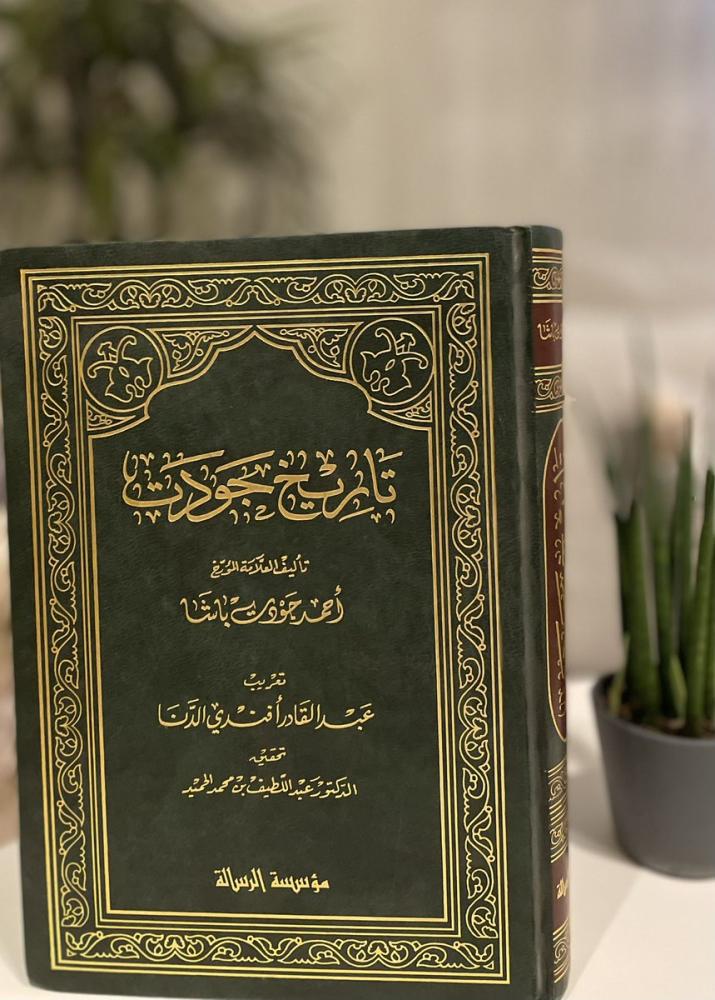 تَارِيخ جَودَت
تأليف العلّامة المؤرخ
أحمد جودت باشا
تعريب
عبد القادر أفندي الدَّنا
تحقيق
الدكتور عبد اللطيف بن محمد الحميد
مؤسسة الرسالة